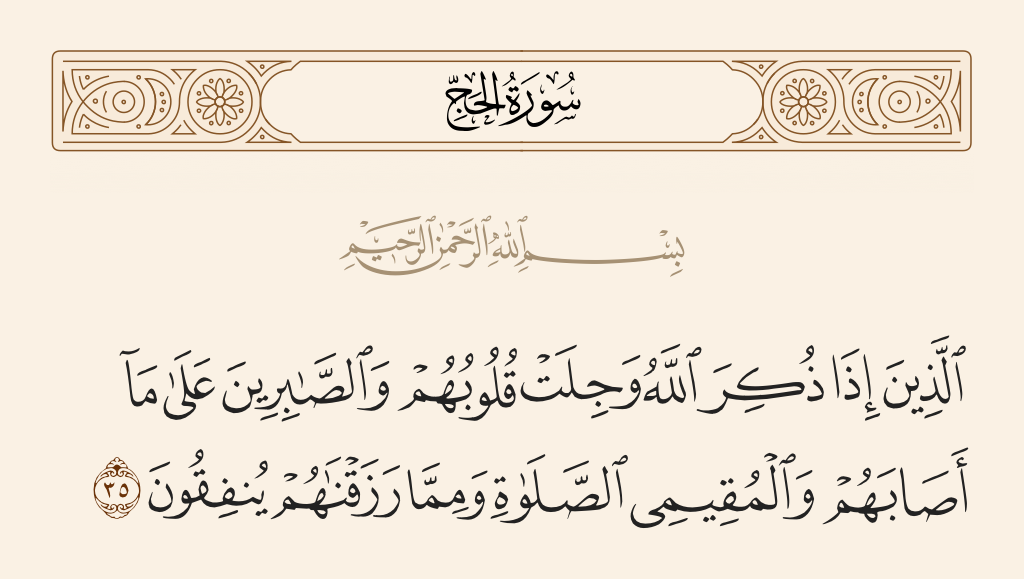 سُورَةُ الحَجِّ
بِسْمِ ٱللَّهِ ٱلرَّحْمَٰنِ ٱلرَّحِيمِ
ٱلَّذِينَ إِذَا ذُكِرَ ٱللَّهُ وَجِلَتْ قُلُوبُهُمْ وَٱلصَّٰبِرِينَ عَلَىٰ مَآ
أَصَابَهُمْ وَٱلْمُقِيمِى ٱلصَّلَوٰةِ وَمِمَّا رَزَقْنَٰهُمْ يُنفِقُونَ ٣٥